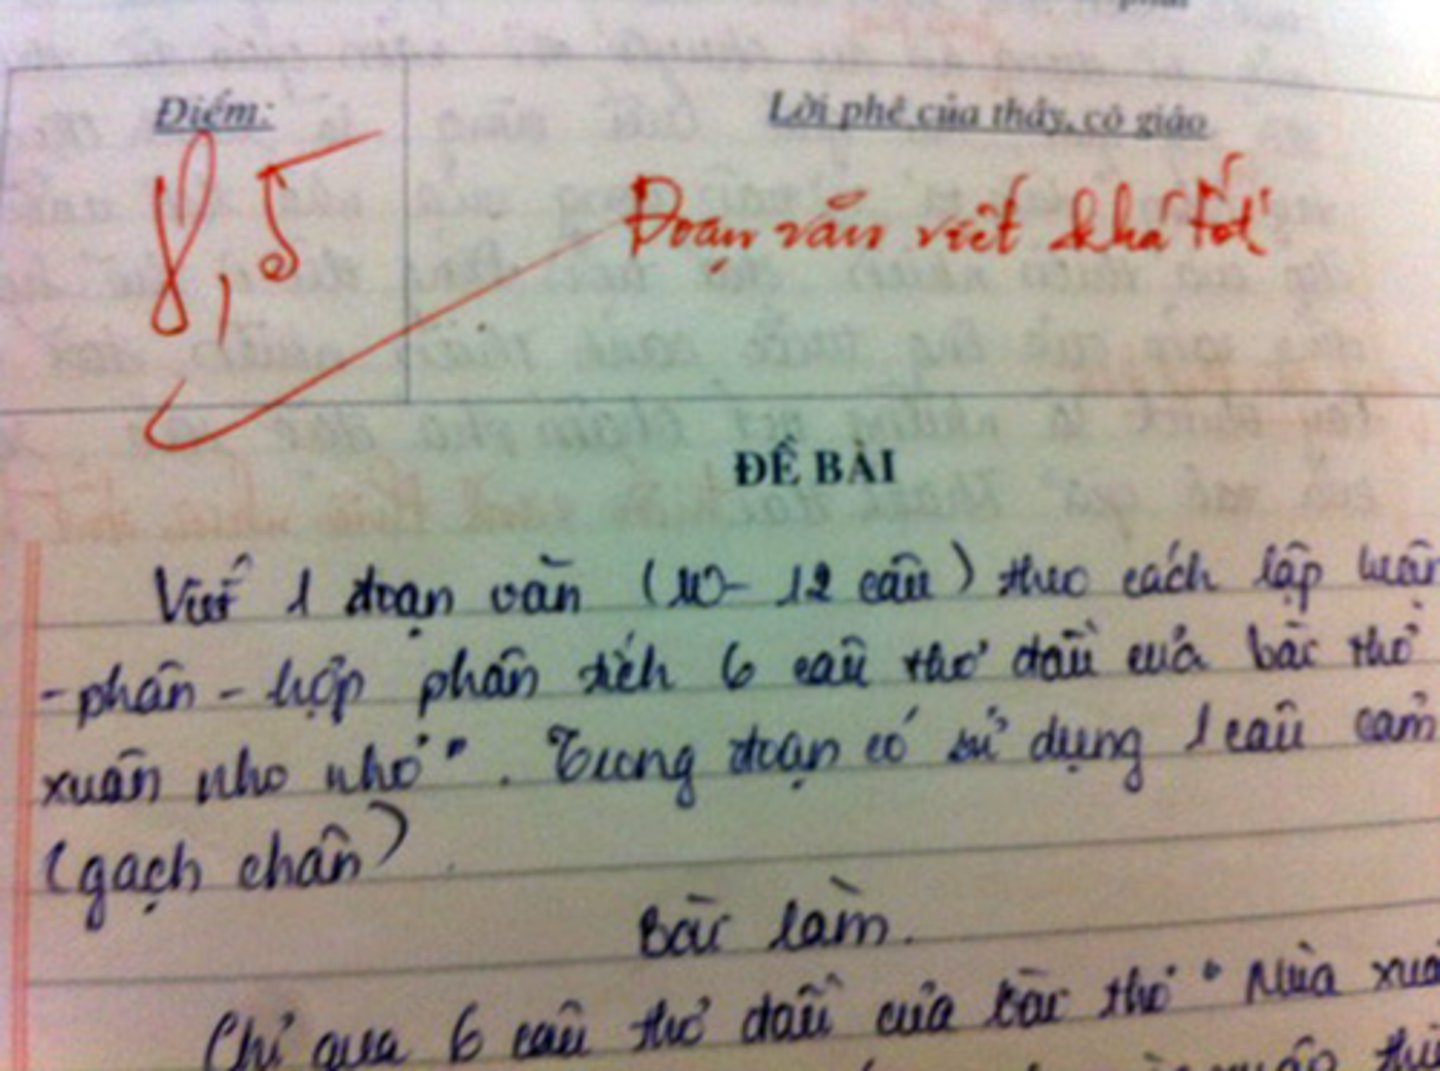 Điểm:
Lời phê của thầy, cô giáo
8,5
Đoạn văn viết khá tốt
ĐỀ BÀI
Viết 1 đoạn văn (10- 12 câu) theo cách lập luận
-phân - hợp phân tích 6 câu thơ đầu của bài thơ
xuân nho nhỏ". Trong đoạn có sử dụng 1 câu cảm
(gạch chân)
Bài làm.
Chỉ qua 6 câu thơ đầu của bài thơ "Mùa